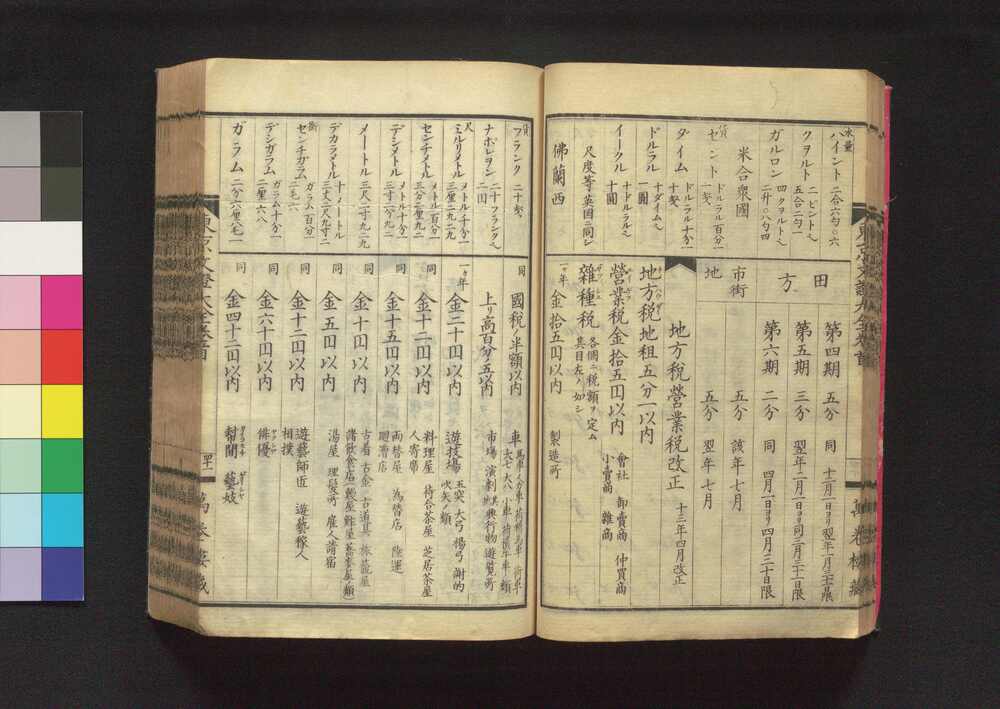 水量
パイント 二合六勺〇六
クヲルト 二ピントヘ 五合二勺一
ガルロン 四クヲルトヘ 二升〇八勺四
米合衆國
貨
セント ドルラル百分一 一匁
ダイム ドルラル十分一 十匁
ドルラル 十ダイムヘ 一圓
イークル 十ドルラルヘ 十圓
尺度等英国ニ同シ
佛蘭西
田方
第四期 五分 同 十二月一日ヨリ翌年一月三十一日限
第五期 三分 翌年二月一日ヨリ同三月三十一日限
第六期 二分 同 四月一日ヨリ四月三十日限
市街地
五分 該年七月
五分 翌年七月
地方税營業税改正 十三年四月改正
地方税 地租五分一以内
營業税 金拾五円以内 會社 卸賣商 仲買商 小賣商 雜商
雜種税 各個ニ税額ヲ定ム 其目左ノ如シ
一ヶ年 金拾五円以内 製造所
貨
フランク 二十匁
ナポレヲン 二十フランクヘ 二円
尺
ミルリメトル メトル千分一 三厘二九二九
センチメトル メトル百分一 三分二厘九二
デシメトル メトル十分一 三寸二分九二
メートル 三尺二寸九二九
デカラメトル 十メートル 三丈二尺九寸二
衡
センチガラム ガラム百分一 二毛六
デシガラム ガラム十分一 二厘六八
ガラム 二分六厘六毛一
同 國税ノ半額以内 車
同 上リ高百分ノ五以内 市場 演劇 興行物 遊覧所
一ヶ年 金二十円以内 遊技場 玉突 大弓 楊弓 射的 吹矢ノ類
同 金十二円以内 料理屋 待合茶屋 芝居茶屋 人寄席
同 金十五円以内 両替屋 為替店 陸運 廻漕店
同 金十円以内 古着 古金 古道具 旅籠屋
同 金五円以内 湯屋 理髪所 雇人請宿
同 金十二円以内 遊藝師匠 遊藝稼人 相撲
同 金六十円以内 俳優
同 金四十二円以内 幇間 藝妓